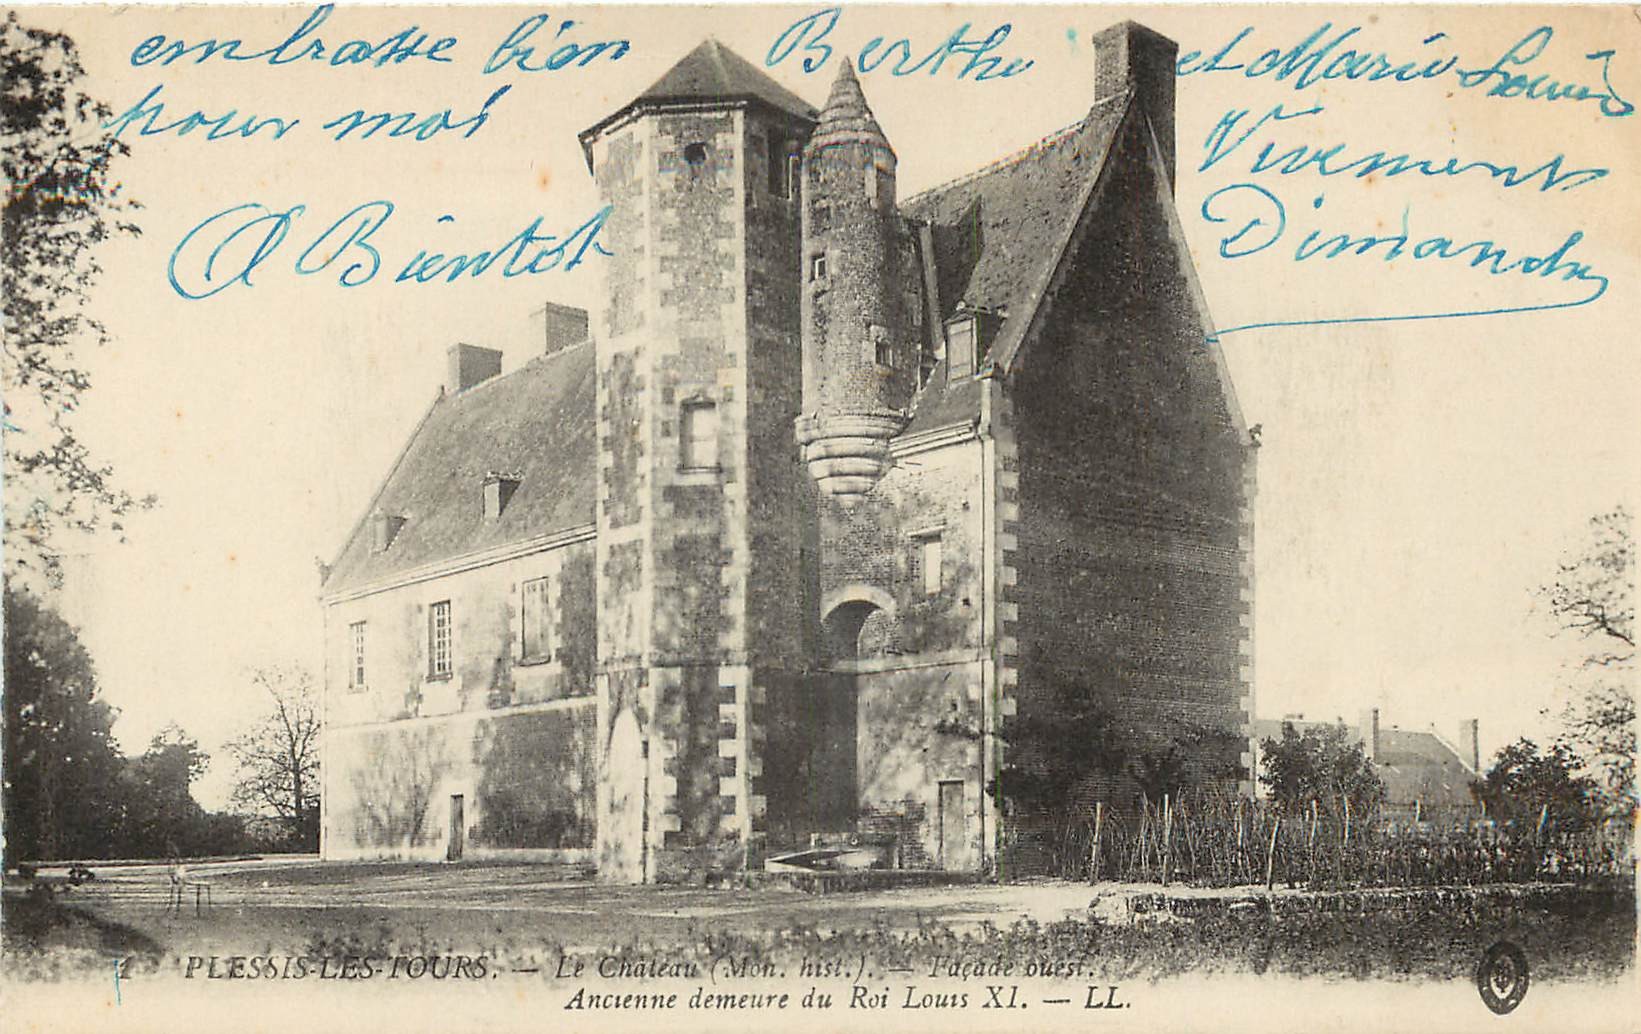 embrasse bien Berthe et Marie-Louise
pour moi
Vivement
A Bientot
Dimanche
1 PLESSIS-LES-TOURS. — Le Château (Mon. hist.). — Façade ouest.
Ancienne demeure du Roi Louis XI. — LL.